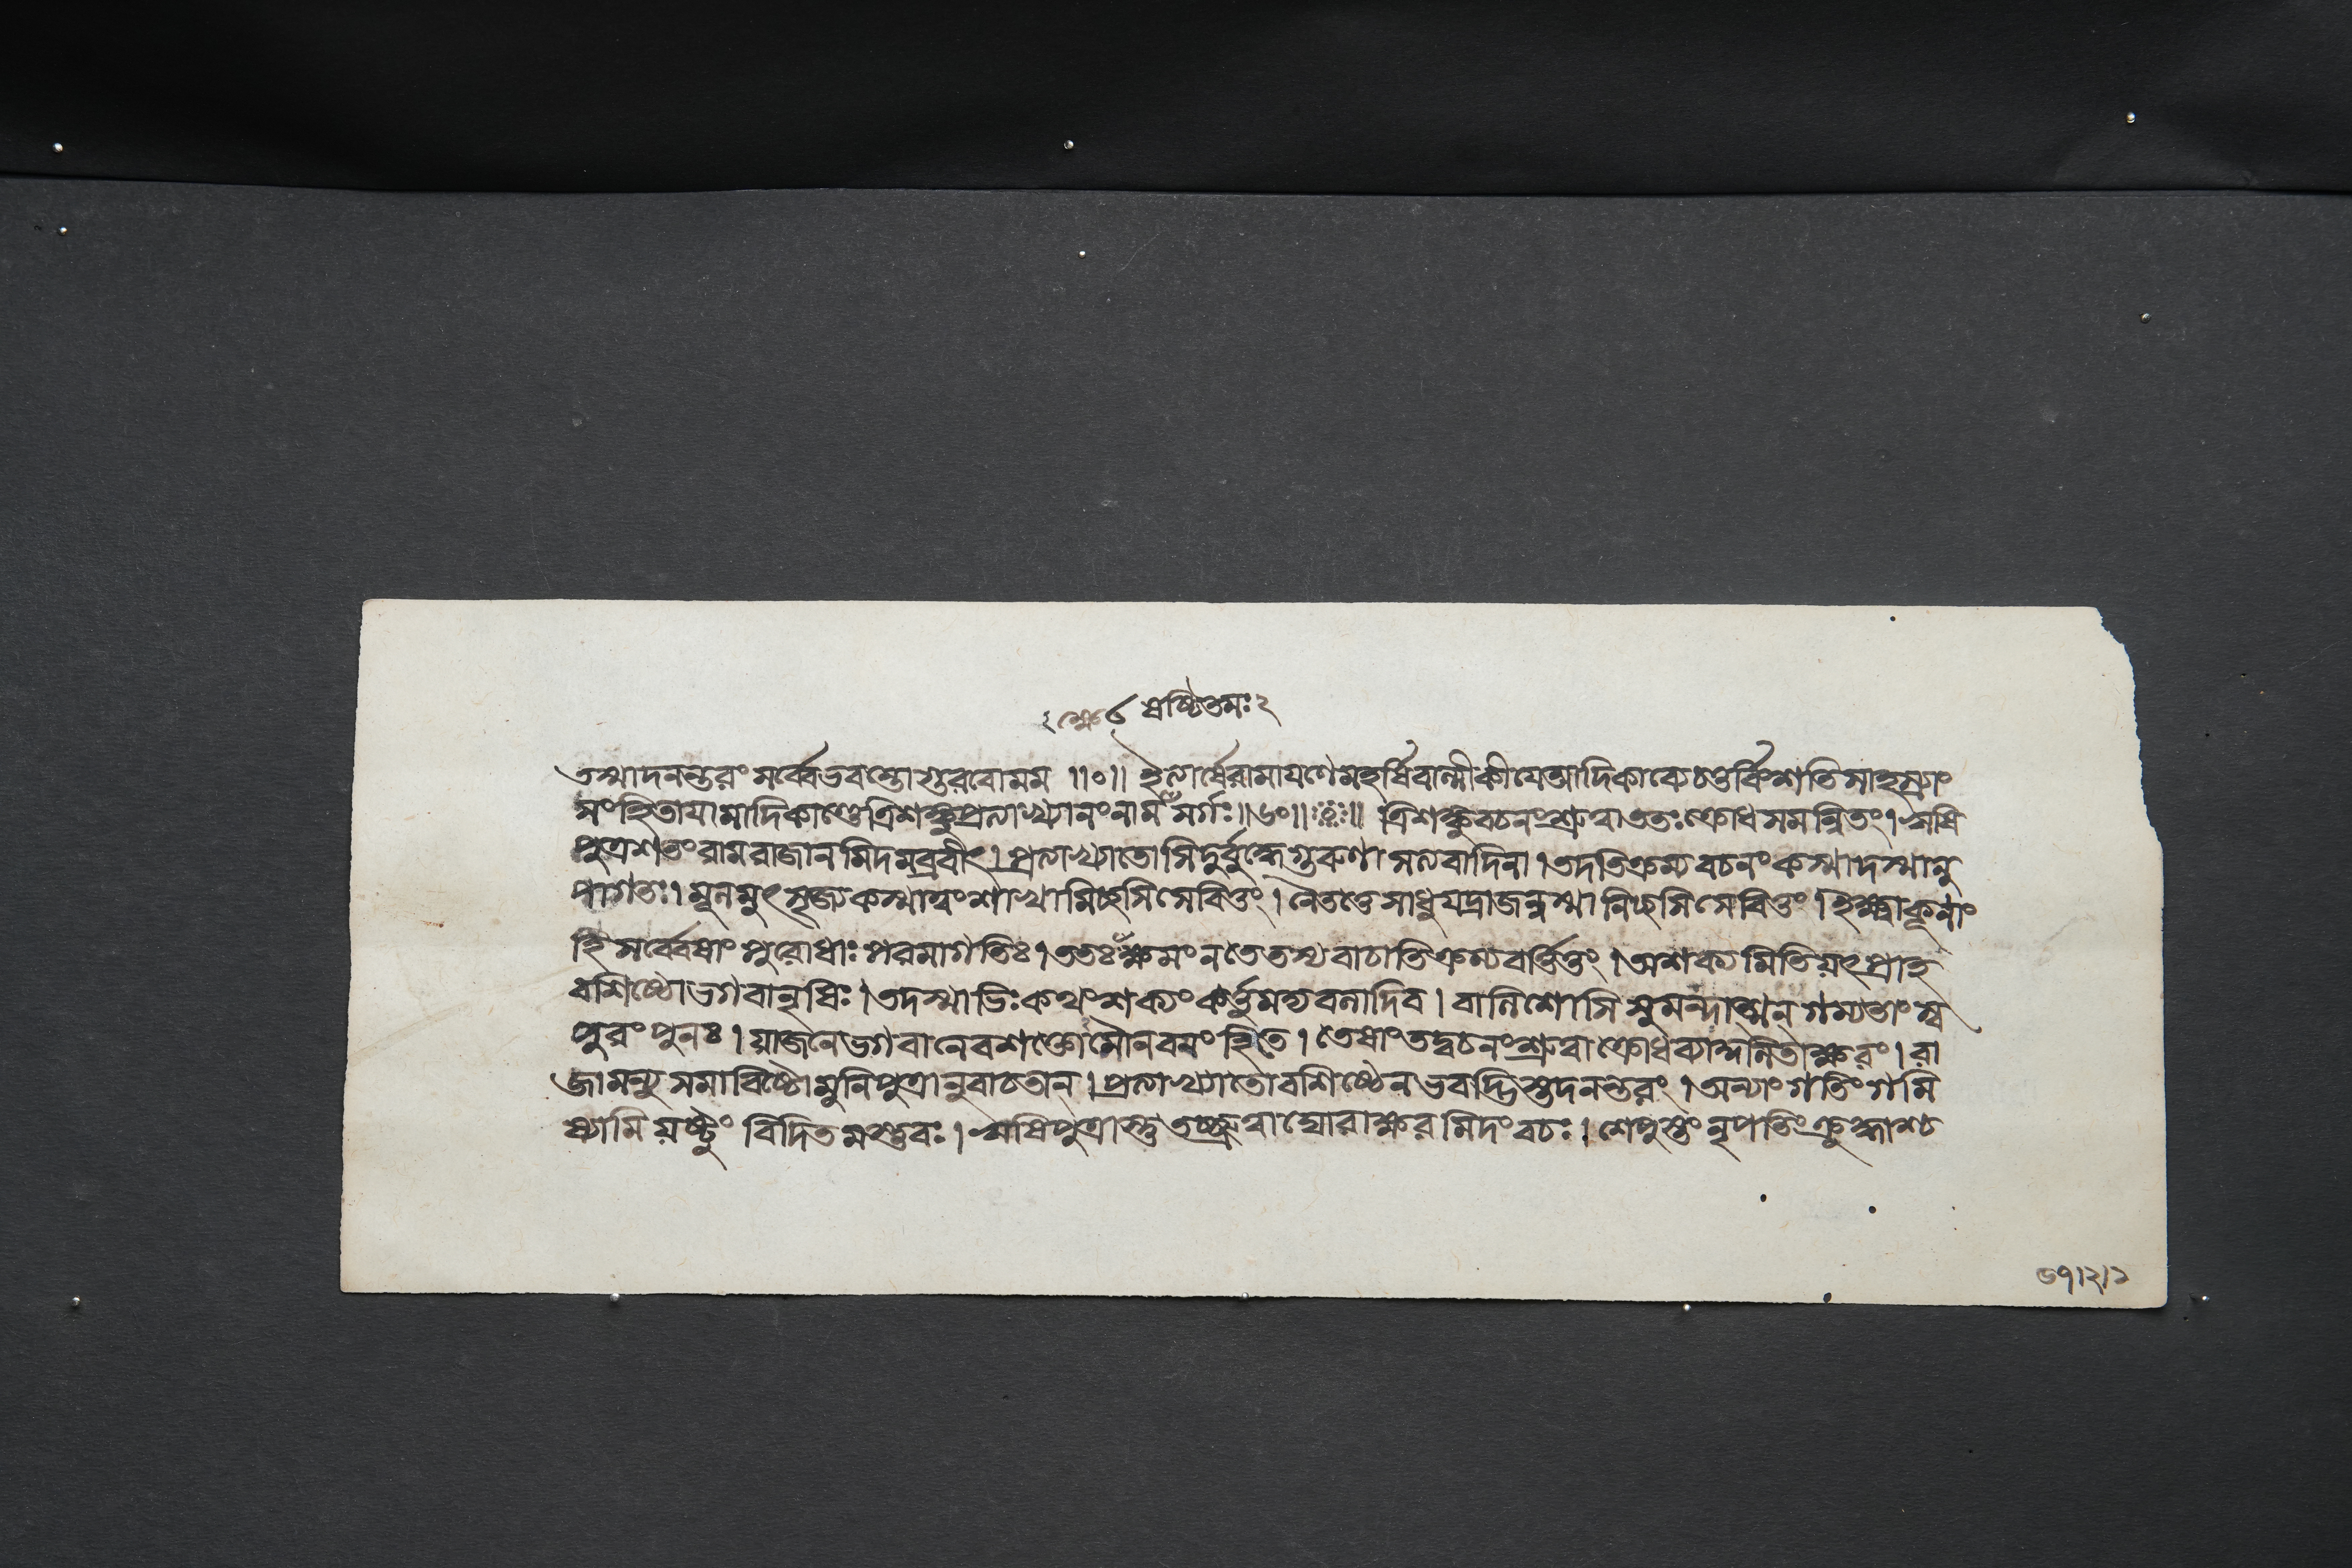 ষষ্টিতমঃ২
তস্মাদনন্তরং সর্ব্বেভবন্তোগুরবোমম ॥০॥ ইত্যার্ষেরামায়ণেমহর্ষিবাল্মীকীয়েআদিকাব্যেচতুর্বিংশতিসাহস্র্যাং
সংহিতায়ামাদিকাণ্ডেত্রিশঙ্কুপ্রত্যাখ্যানংনাম সর্গঃ॥৬০॥ ॥ ত্রিশঙ্কুবচনংশ্রুত্বাততঃক্রোধসমন্বিতং।ঋষি
পুত্রশতংরামরাজানমিদমব্রবীৎ।প্রত্যাখ্যাতোসিদুর্বুদ্ধেগুরুণাসত্যবাদিনা।তদতিক্রম্যবচনংকস্মাদস্মানু
পাগতঃ।মূলমুৎসৃজ্যকস্মাত্ত্বংশাখামিচ্ছসিসেবিতুং।নৈতত্তেসাধুযদ্রাজন্নস্মানিচ্ছসিসেবিতুং।ইক্ষ্বাকূনাং
হিসর্ব্বেষাংপুরোধাঃপরমাগতিঃ।ততঃক্ষমংনতেতস্যবাচাতিক্রম্যবর্ত্তিতুং।অশক্যমিতিয়ৎপ্রাহ
বশিষ্ঠোভগবানৃষিঃ।তদস্মাভিঃকথংশক্যংকর্ত্তুমন্যবলাদিব।বালিশোসিসুমন্দাত্মন্গম্যতাংস্ব
পুরংপুনঃ।য়াজনেভগবানেবশক্তোসৌনবয়ংহিতে।তেষাংতদ্বচনংশ্রুত্বাক্রোধব্যামিলিতাক্ষরং।রা
জামন্যুসমাবিষ্টোমুনিপুত্রানুবাচতান্।প্রত্যাখ্যাতোবশিষ্ঠেনভবদ্ভিস্তদনন্তরং।অন্যাংগতিংগমি
ষ্যামিয়ষ্টুং বিদিতমস্তুবঃ।ঋষিপুত্রাস্তুতচ্ছ্রুত্বাঘোরাক্ষরমিদংবচঃ।শেপুস্তংনৃপতিংক্রুদ্ধাশ্চ
৬৭।২।১